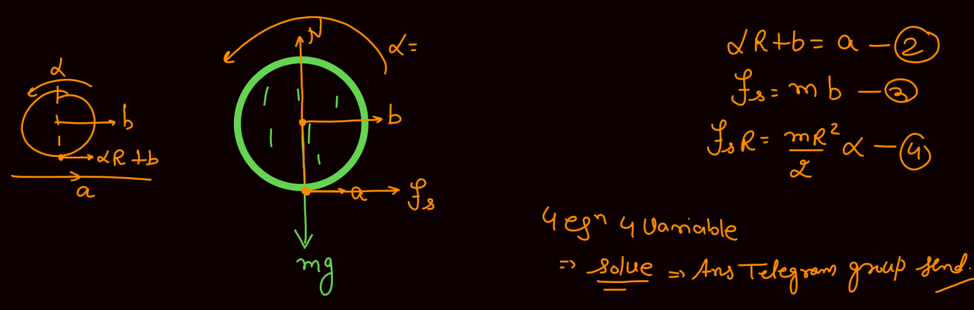 α
b
αR+b
a
N
α=
b
a
fs
mg
αR+b = a — ②
fs = m b — ③
fsR = mR²/2 α — ④
4 eqⁿ 4 Variable
⇒ solve ⇒ Ans Telegram group send.